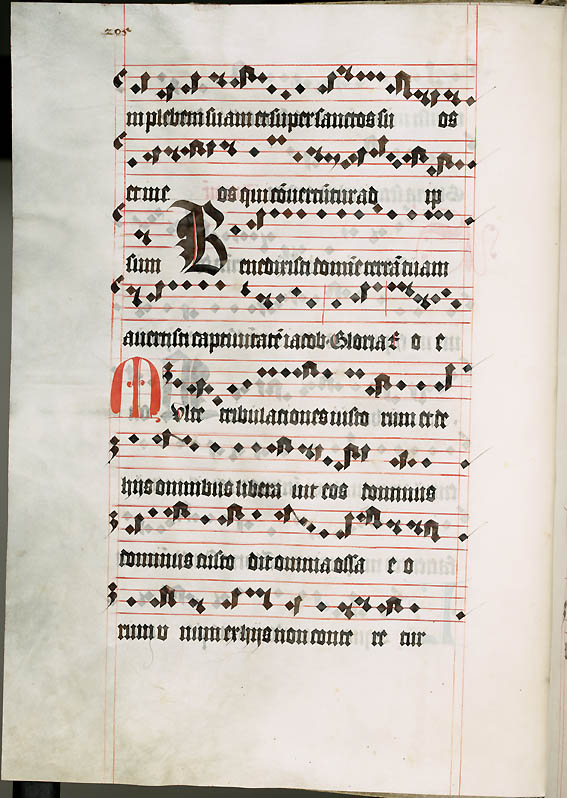 205
in plebem suam et super sanctos su os
et in e os qui cōvertūtur ad ip
sum Benedixisti domīe terrā tuam
avertisti captivitatē iacob Gloria E o e
Multe tribulationes iusto rum et de
hijs omnibus libera vit eos dominus
dominus custo dit omnia ossa e o
rum v num ex hijs non conte re tur